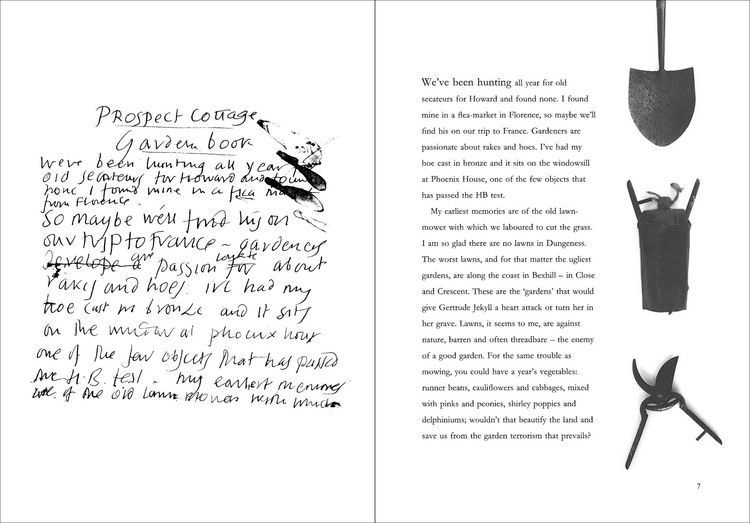 Prospect Cottage
Garden book
weve been hunting all year for
old secateurs for Howard and found
none I found mine in a flea market
from Florence.
So maybe we'll find his on
our trip to France – gardeners
are
passion ate about
rakes and hoes. Ive had my
hoe cast in bronze and it sits
on the window at phoenix hous
one of the few objects that has passed
the H.B. test. my earliest memories
of the old lawn mower with which
We've been hunting all year for old
secateurs for Howard and found none. I found
mine in a flea-market in Florence, so maybe we'll
find his on our trip to France. Gardeners are
passionate about rakes and hoes. I've had my
hoe cast in bronze and it sits on the windowsill
at Phoenix House, one of the few objects that
has passed the HB test.
My earliest memories are of the old lawn-
mower with which we laboured to cut the grass.
I am so glad there are no lawns in Dungeness.
The worst lawns, and for that matter the ugliest
gardens, are along the coast in Bexhill – in Close
and Crescent. These are the 'gardens' that would
give Gertrude Jekyll a heart attack or turn her in
her grave. Lawns, it seems to me, are against
nature, barren and often threadbare – the enemy
of a good garden. For the same trouble as
mowing, you could have a year's vegetables:
runner beans, cauliflowers and cabbages, mixed
with pinks and peonies, shirley poppies and
delphiniums; wouldn't that beautify the land and
save us from the garden terrorism that prevails?
7